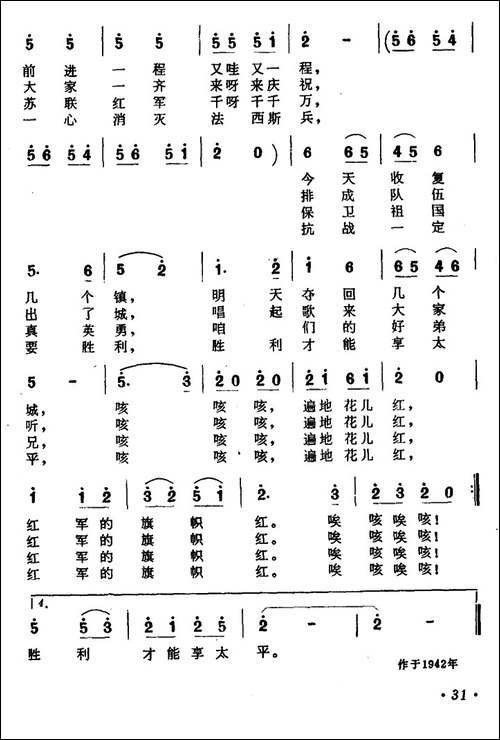 5 5 | 5 5 | 5 5 5 1 | 2 - | (5 6 5 4 |
前 进 一 程 又哇又一 程，
大 家 一 齐 来呀来庆 祝，
苏 联 红 军 千呀千千 万，
一 心 消 灭 法 西斯 兵，
5 6 5 4 | 5 6 5 1 | 2 0 ) | 6 6 5 | 4 5 6 |
今 天 收 复
排 成 队 伍
保 卫 祖 国
抗 战 一 定
5. 6 | 5 2 | 1. 2 | 1 6 | 6 5 4 6 |
几 个 镇， 明 天 夺 回 几 个
出 了 城， 唱 起 歌 来 大 家
真 英 勇， 咱 们 的 好 弟
要 胜 利， 胜 利 才 能 享 太
5 - | 5. 3 | 2 0 2 0 | 2 1 6 1 | 2 0 |
城， 咳 咳 咳， 遍地 花儿 红，
听， 咳 咳 咳， 遍地 花儿 红，
兄， 咳 咳 咳， 遍地 花儿 红，
平， 咳 咳 咳， 遍地 花儿 红，
1 1 2 | 3 2 5 1 | 2. 3 | 2 3 2 0 :|
红 军的 旗 帜 红。 唉 咳唉咳！
红 军的 旗 帜 红。 唉 咳唉咳！
红 军的 旗 帜 红。 唉 咳唉咳！
红 军的 旗 帜 红。 唉 咳唉咳！
4.
5 5 3 | 2 1 2 5 | 2 - | 2 - ‖
胜 利 才能享太 平。
作于1942年
· 31 ·